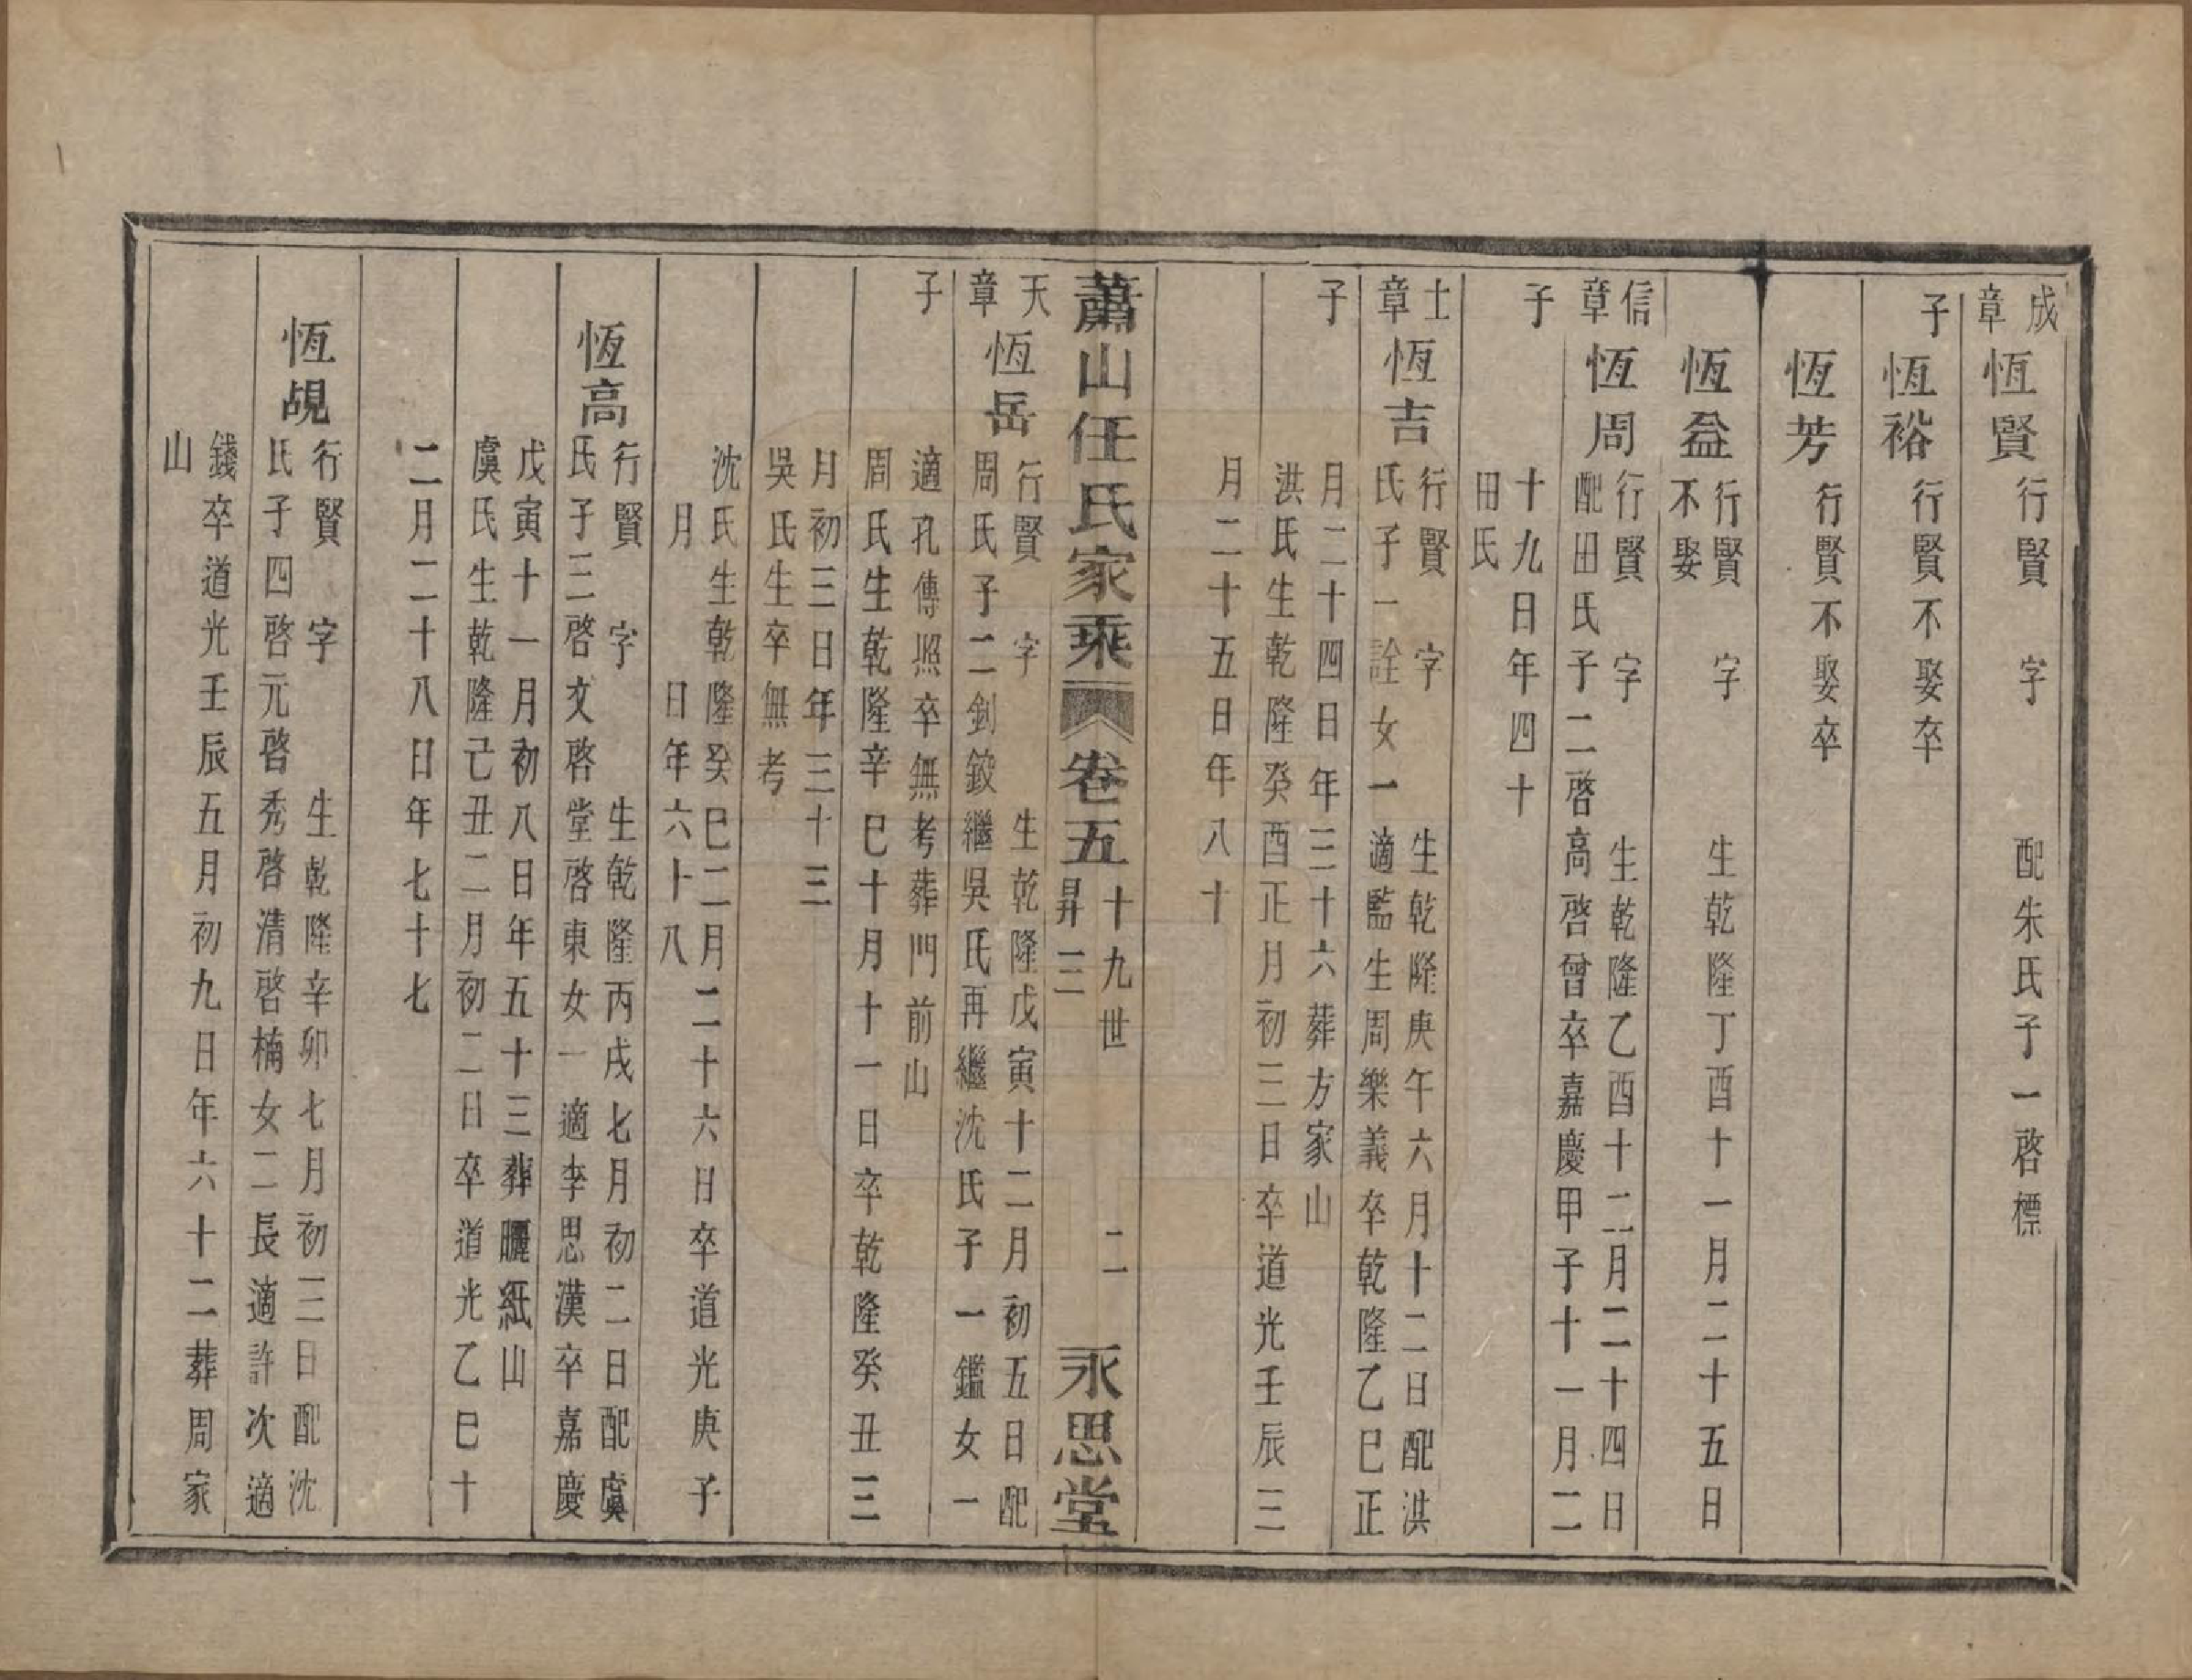 成章子
恆賢 行賢 字 配朱氏子一啓標
恆裕 行賢不娶卒
恆芳 行賢不娶卒
恆益 行賢 字 生乾隆丁酉十一月二十五日
不娶
信章子
恆周 行賢 字 生乾隆乙酉十二月二十四日
配田氏子二啓高啓曾卒嘉慶甲子十一月二
十九日年四十
田氏
士章子
恆吉 行賢 字 生乾隆庚午六月十二日配洪
氏子一詮女一適監生周樂義卒乾隆乙巳正
月二十四日年三十六葬方家山
洪氏生乾隆癸酉正月初三日卒道光壬辰三
月二十五日年八十
蕭山任氏家乘 卷五 十九世 昇二 二 永思堂
天章子
恆岳 行賢 字 生乾隆戊寅十二月初五日配
周氏子二釗鈫繼吳氏再繼沈氏子一鑑女一
適孔傳照卒無考葬門前山
周氏生乾隆辛巳十月十一日卒乾隆癸丑三
月初三日年三十三
吳氏生卒無考
沈氏生乾隆癸巳二月二十六日卒道光庚子
月 日年六十八
恆高 行賢 字 生乾隆丙戌七月初二日配虞
氏子三啓文啓堂啓東女一適李思漢卒嘉慶
戊寅十一月初八日年五十三葬曬紙山
虞氏生乾隆己丑二月初二日卒道光乙巳十
二月二十八日年七十七
恆覘 行賢 字 生乾隆辛卯七月初三日配沈
氏子四啓元啓秀啓清啓楠女二長適許次適
錢卒道光壬辰五月初九日年六十二葬周家
山